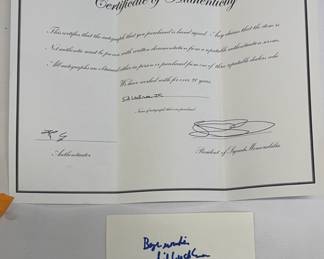 Certificate of Authenticity
This certifies that the autograph that you purchased is hand signed. Any claims that the item is
Not authentic must be proven with written documentation from a reputable authentication service.
All autographs are obtained either in person or purchased from one of three reputable dealers, who
We have worked with for over 20 years.
Name of autograph that was purchased
Authenticator
President of Signals Memorabilia
Best wishes